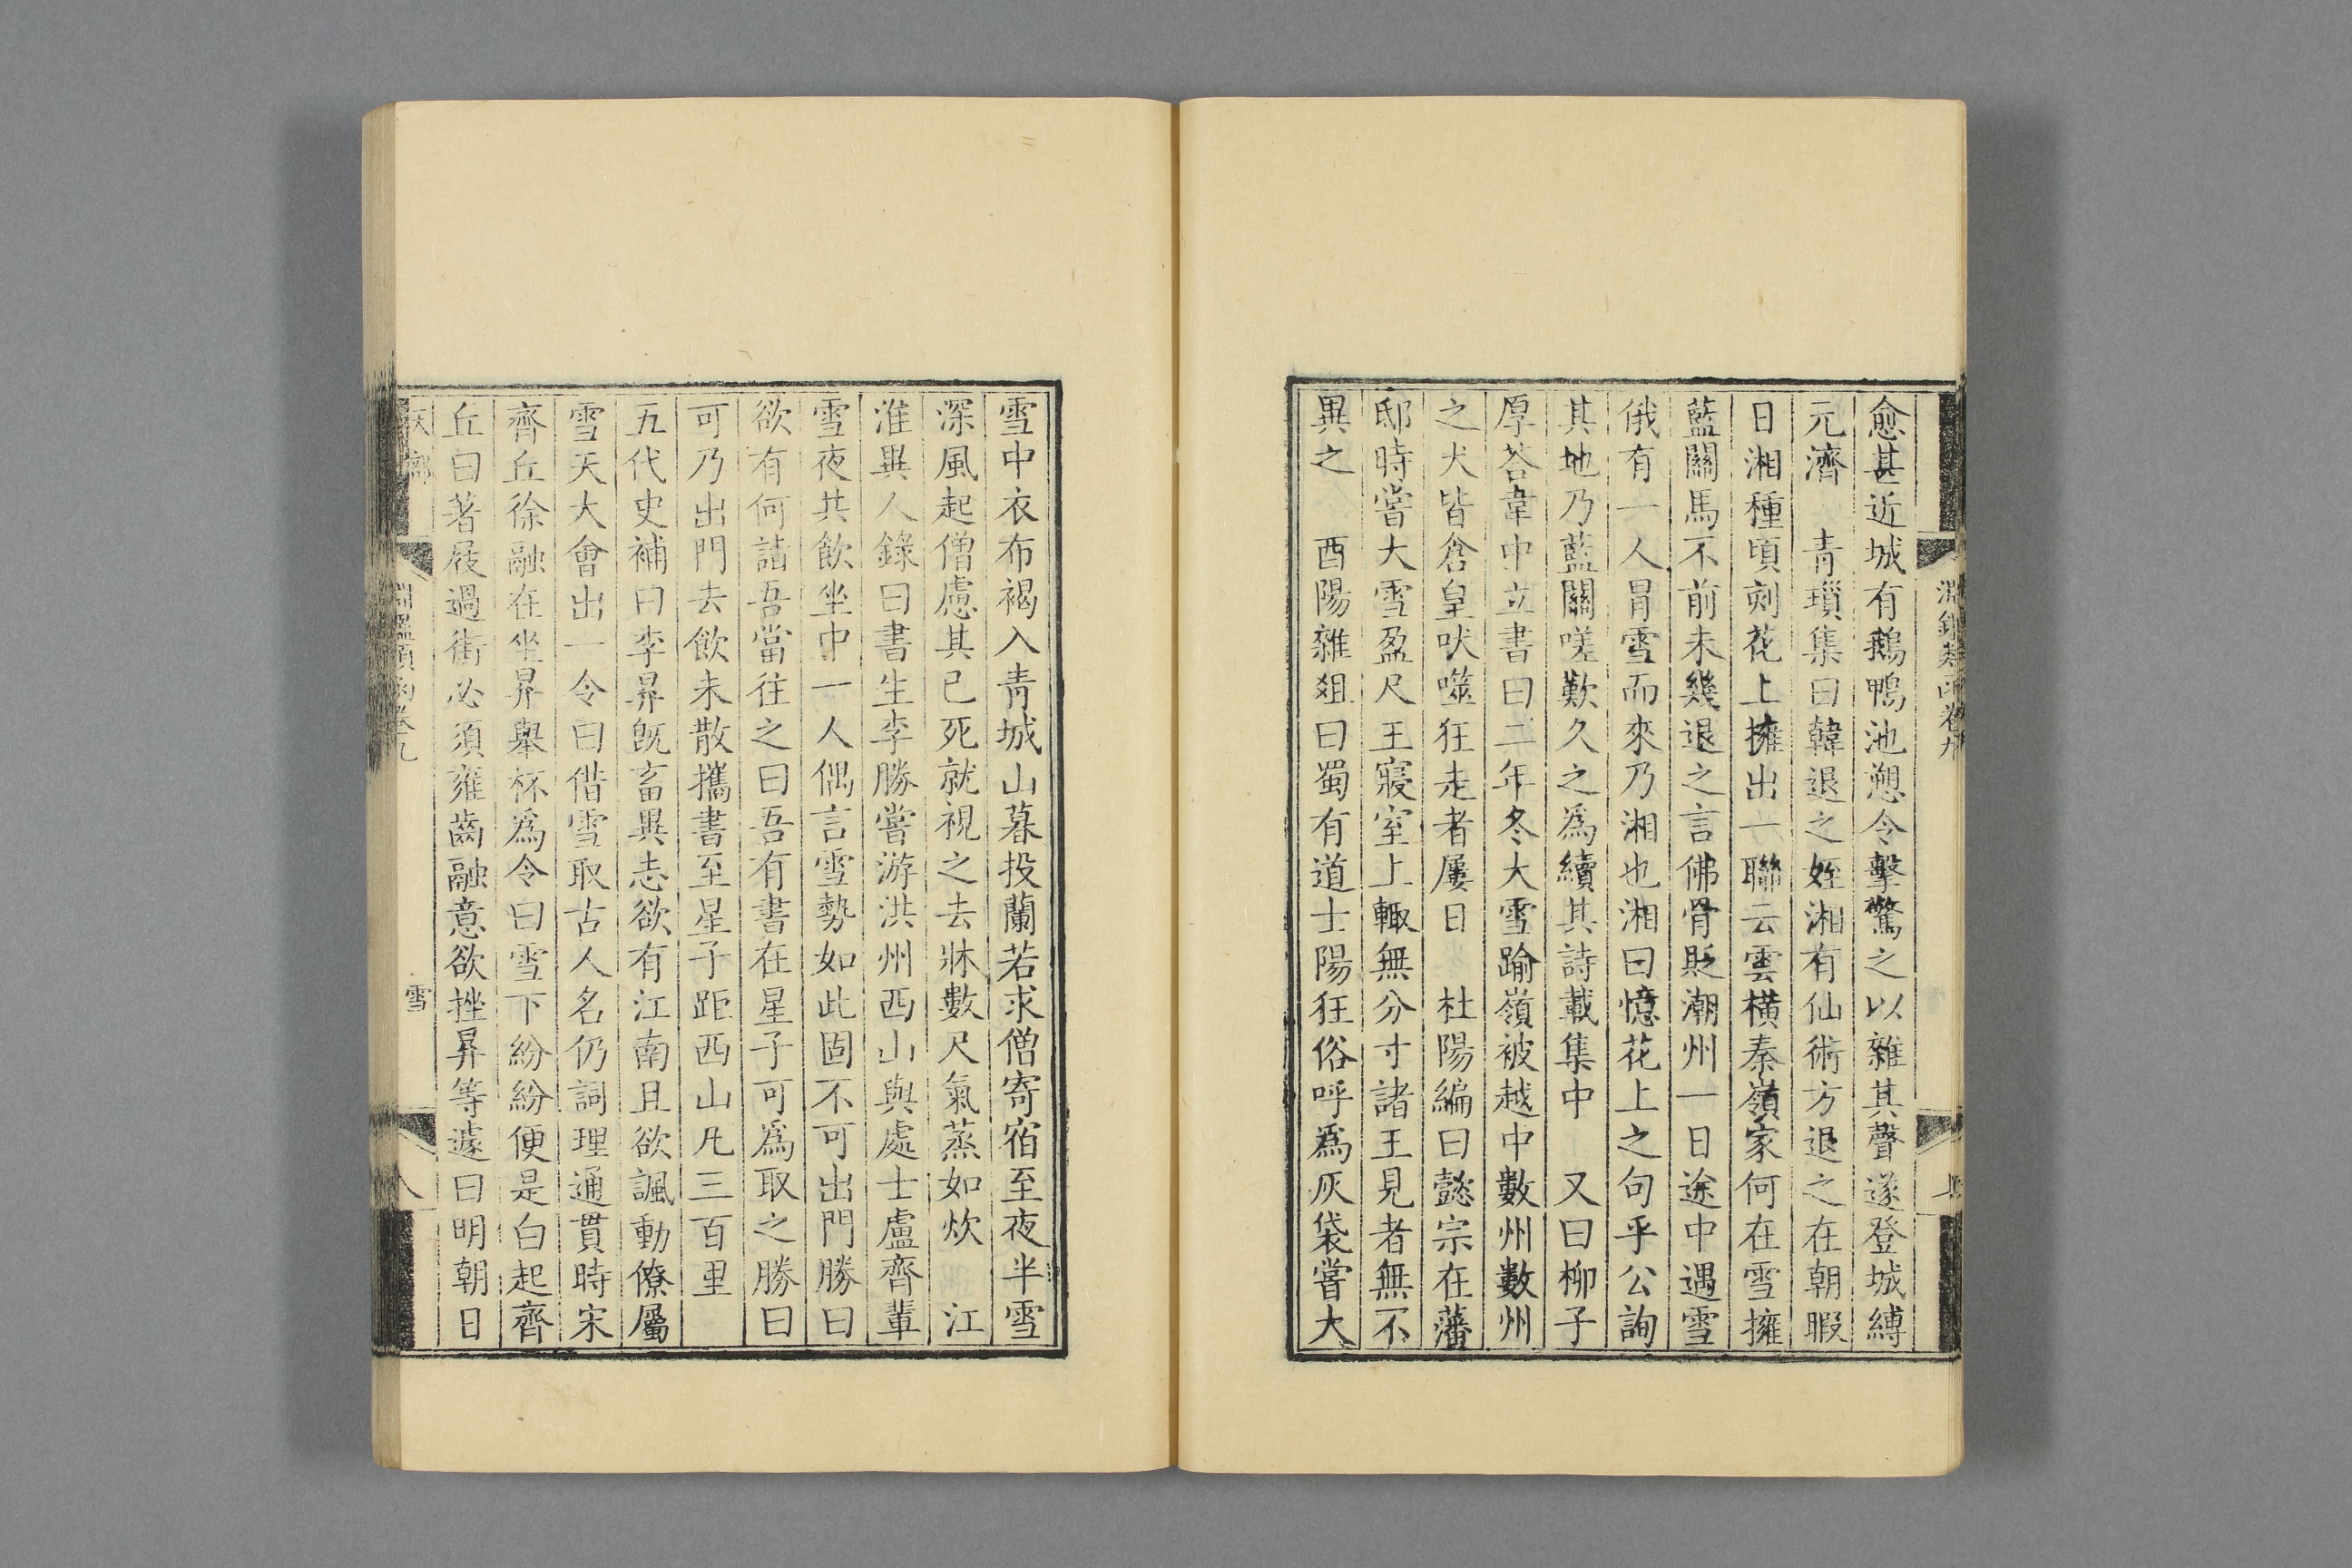 愈甚近城有鵝鴨池愬令擊驚之以雜其聲遂登城縛
元濟　青瑣集曰韓退之姪湘有仙術方退之在朝暇
日湘種頃刻花上擁出一聯云雲橫秦嶺家何在雪擁
藍關馬不前未幾退之言佛骨貶潮州一日途中遇雪
俄有一人冒雪而來乃湘也湘曰憶花上之句乎公詢
其地乃藍關嗟歎久之爲續其詩載集中　又曰柳子
厚荅韋中立書曰二年冬大雪踰嶺被越中數州數州
之犬皆倉皇吠噬狂走者屢日　杜陽編曰懿宗在藩
邸時嘗大雪盈尺王寢室上輙無分寸諸王見者無不
異之　酉陽雜俎曰蜀有道士陽狂俗呼爲灰袋嘗大
雪中衣布褐入青城山暮投蘭若求僧寄宿至夜半雪
深風起僧慮其已死就視之去牀數尺氣蒸如炊　江
淮異人錄曰書生李勝嘗游洪州西山與處士盧齊輩
雪夜共飲坐中一人偶言雪勢如此固不可出門勝曰
欲有何詣吾當往之曰吾有書在星子可爲取之勝曰
可乃出門去飲未散攜書至星子距西山凡三百里
五代史補曰李昪旣畜異志欲有江南且欲諷動僚屬
雪天大會出一令曰借雪取古人名仍詞理通貫時宋
齊丘徐融在坐昪舉杯爲令曰雪下紛紛便是白起齊
丘曰著屐過街必須雍齒融意欲挫昪等遽曰明朝日
淵鑑類函卷九
雪
八